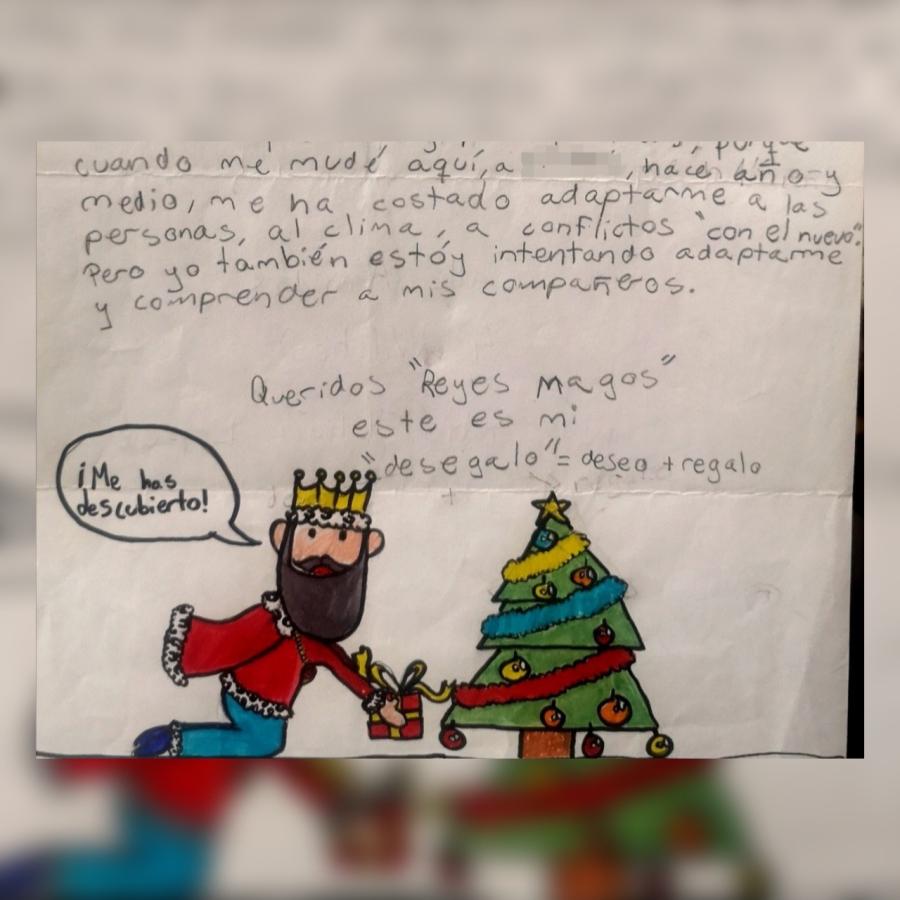 porque
cuando me mudé aquí, a , hace año y
medio, me ha costado adaptarme a las
personas, al clima, a conflictos "con el nuevo".
Pero yo también estóy intentando adaptarme
y comprender a mis compañeros.
Queridos "Reyes magos"
este es mi
"desegalo" = deseo + regalo
¡Me has
descubierto!